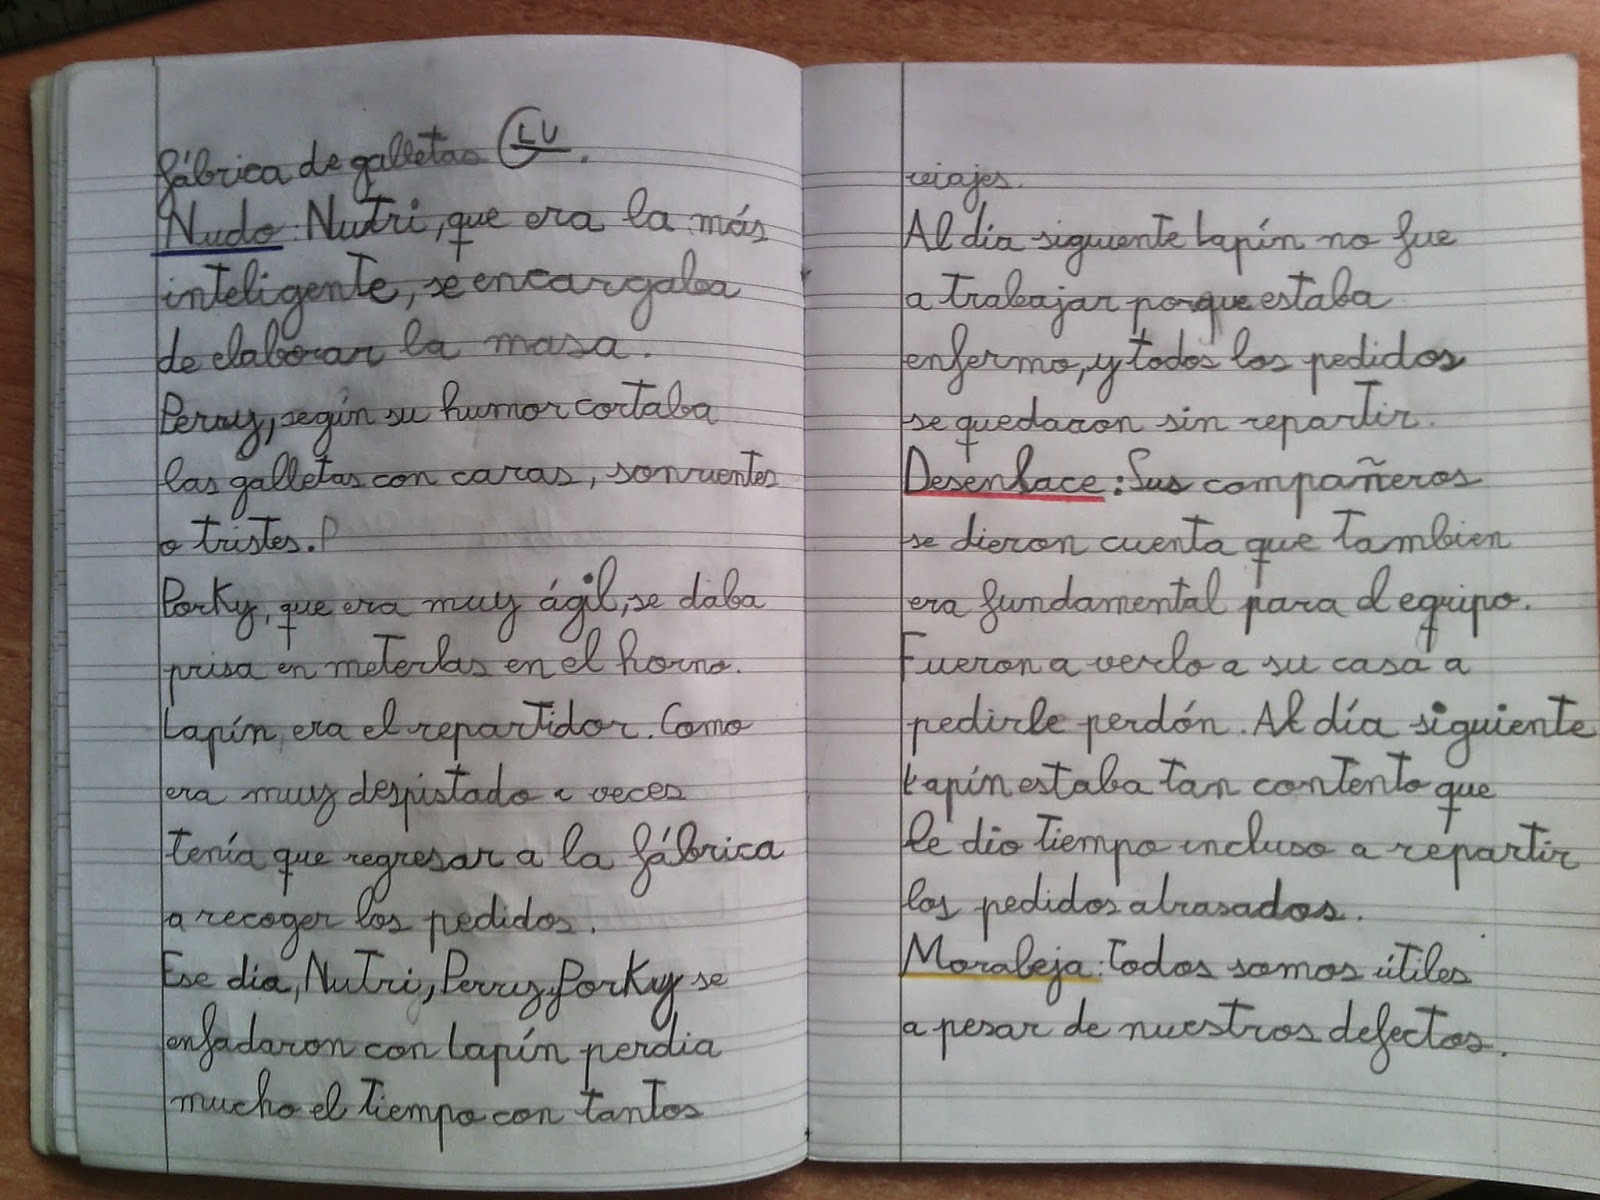 fábrica de galletas LU.
Nudo: Nutri, que era la más
inteligente, se encargaba
de elaborar la masa.
Perry, según su humor cortaba
las galletas con caras, sonrientes
o tristes. P
Porky, que era muy ágil, se daba
prisa en meterlas en el horno.
Lapín, era el repartidor. Como
era muy despistado a veces
tenía que regresar a la fábrica
a recoger los pedidos.
Ese dia, Nutri, Perry, Porky se
enfadaron con Lapín perdia
mucho el tiempo con tantos
viajes.
Al día siguiente Lapín no fue
a trabajar porque estaba
enfermo, y todos los pedidos
se quedaron sin repartir.
Desenlace: Sus compañeros
se dieron cuenta que tambien
era fundamental para el equipo.
Fueron a verlo a su casa a
pedirle perdón. Al día siguiente
Lapín estaba tan contento que
le dio tiempo incluso a repartir
los pedidos atrasados.
Moraleja: Todos somos útiles
a pesar de nuestros defectos.